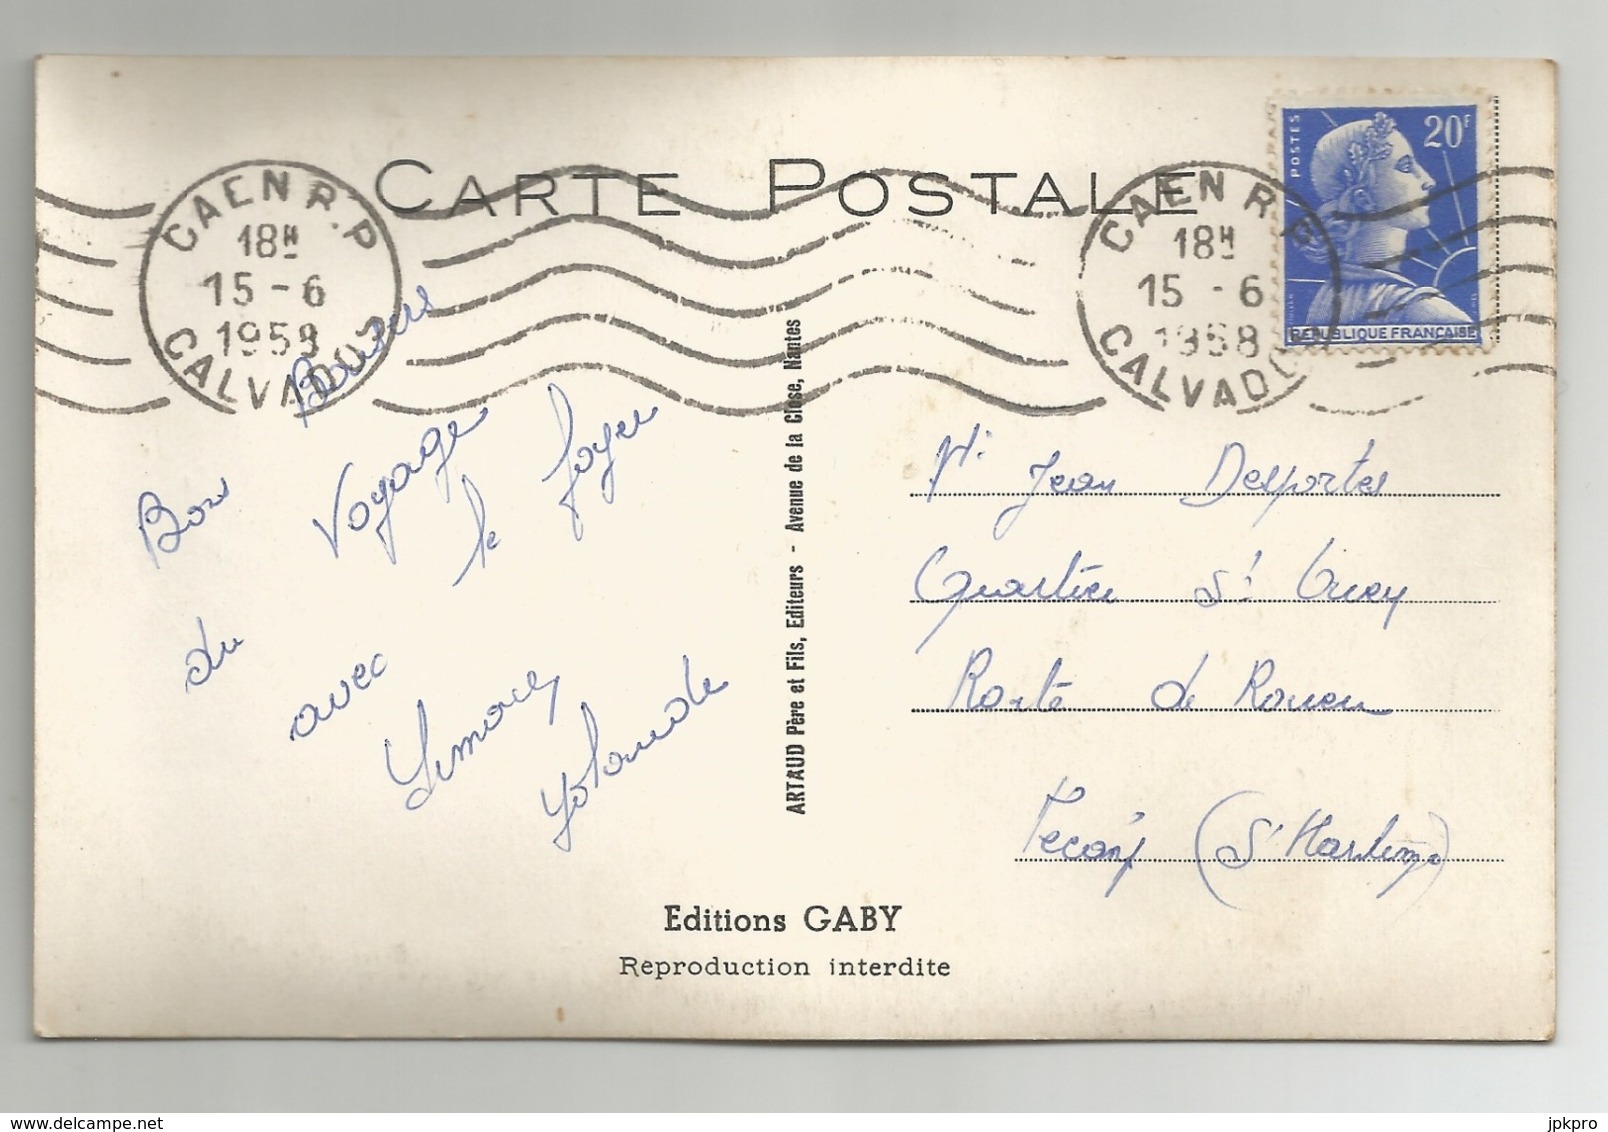 CARTE POSTALE
CAEN R.P
18H
15-6
1958
CALVADOS
CAEN R.P
18H
15-6
1958
CALVADOS
POSTES
20F
REPUBLIQUE FRANÇAISE
Bons Baisers
du Voyage
avec le foyer
Simone
Yolande
ARTAUD Père et Fils, Editeurs - Avenue de la Close, Nantes
Mr Jean Desportes
Quartier St
Route de Rouen
Fecamp (St
Editions GABY
Reproduction interdite
delcampe.net
jpkpro